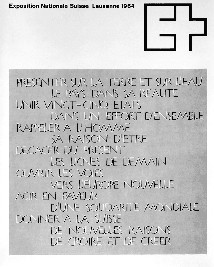 Exposition Nationale Suisse Lausanne 1964
PRESENTER SUR LA TERRE ET SUR L'EAU
LE PAYS DANS SA BEAUTE
UNIR VINGT-CINQ ETATS
DANS UN EFFORT D'ENSEMBLE
RAPPELER A L'HOMME
SA RAISON D'ETRE
DEGAGER DU PRESENT
LES LIGNES DE DEMAIN
OUVRIR LES VOIES
VERS L'EUROPE NOUVELLE
AGIR EN FAVEUR
D'UNE SOLIDARITE MONDIALE
DONNER A LA SUISSE
DE NOUVELLES RAISONS
DE CROIRE ET DE CREER